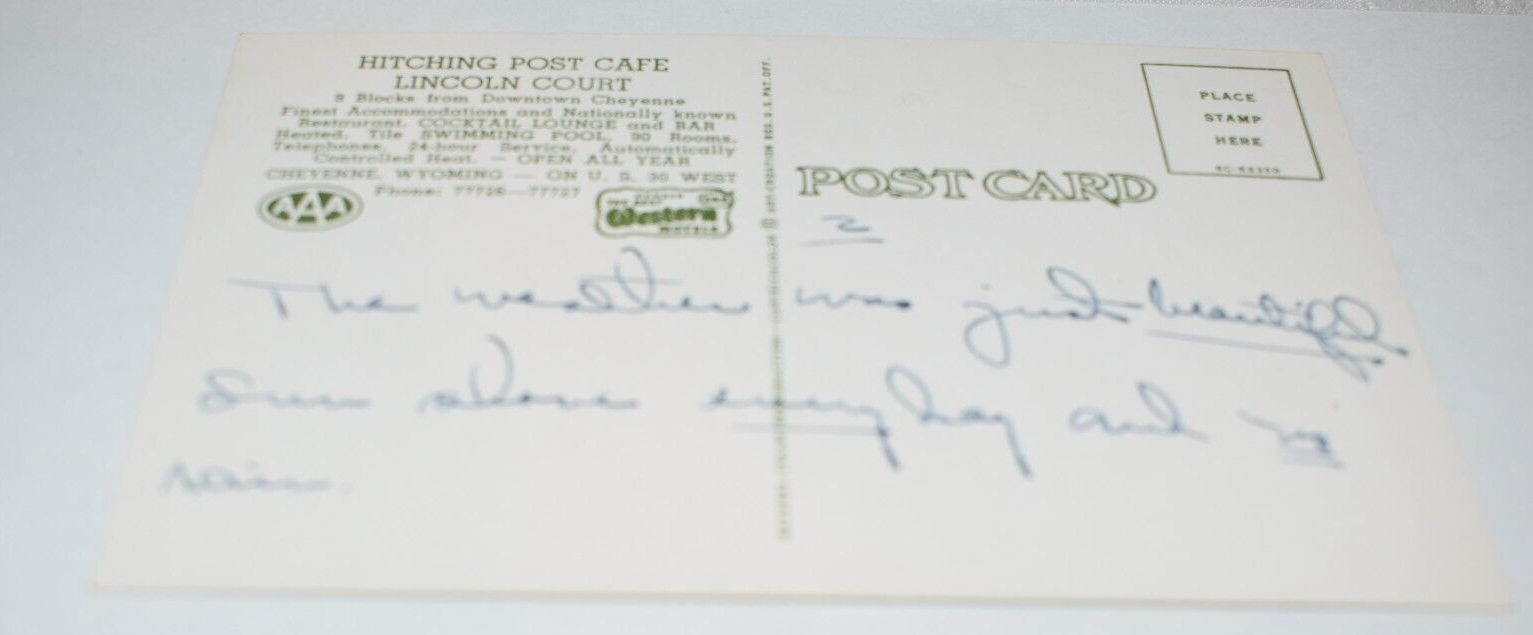 HITCHING POST CAFE
LINCOLN COURT
9 Blocks from Downtown Cheyenne
Finest Accommodations and Nationally known
Restaurant, COCKTAIL LOUNGE and BAR
Heated, Tile SWIMMING POOL, 90 Rooms,
Telephones, 24-hour Service, Automatically
Controlled Heat. — OPEN ALL YEAR
CHEYENNE, WYOMING — ON U. S. 30 WEST
Phone: 77726—77727
AAA
Western
MOTELS
REG. U.S. PAT. OFF.
POST CARD
PLACE
STAMP
HERE
2
The weather was just beautiful.
Sun shone every day and no
rain.